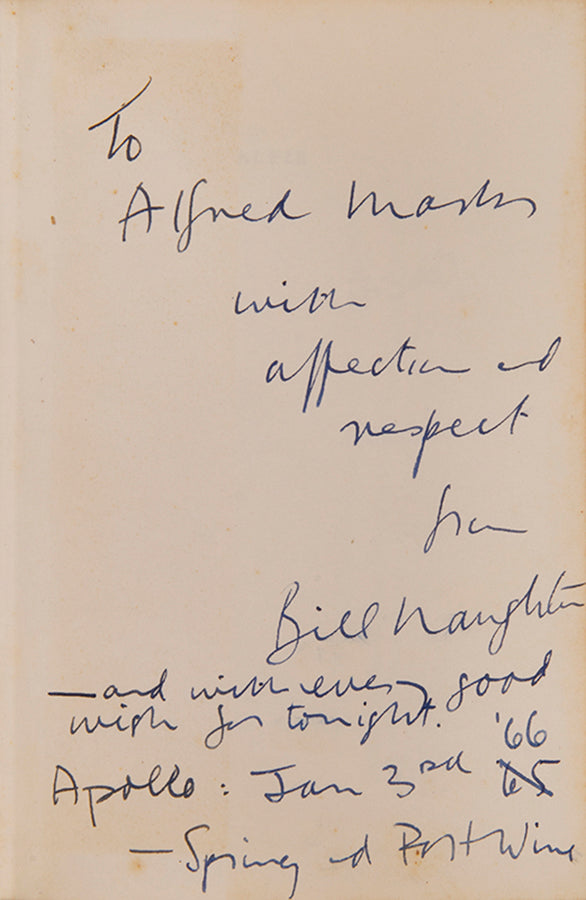 To
Alfred Marks
with
affection and
respect
from
Bill Naughton
—and with every good
wish for tonight.
'66
Apollo: Jan 3rd 65
—Spring and Port Wine